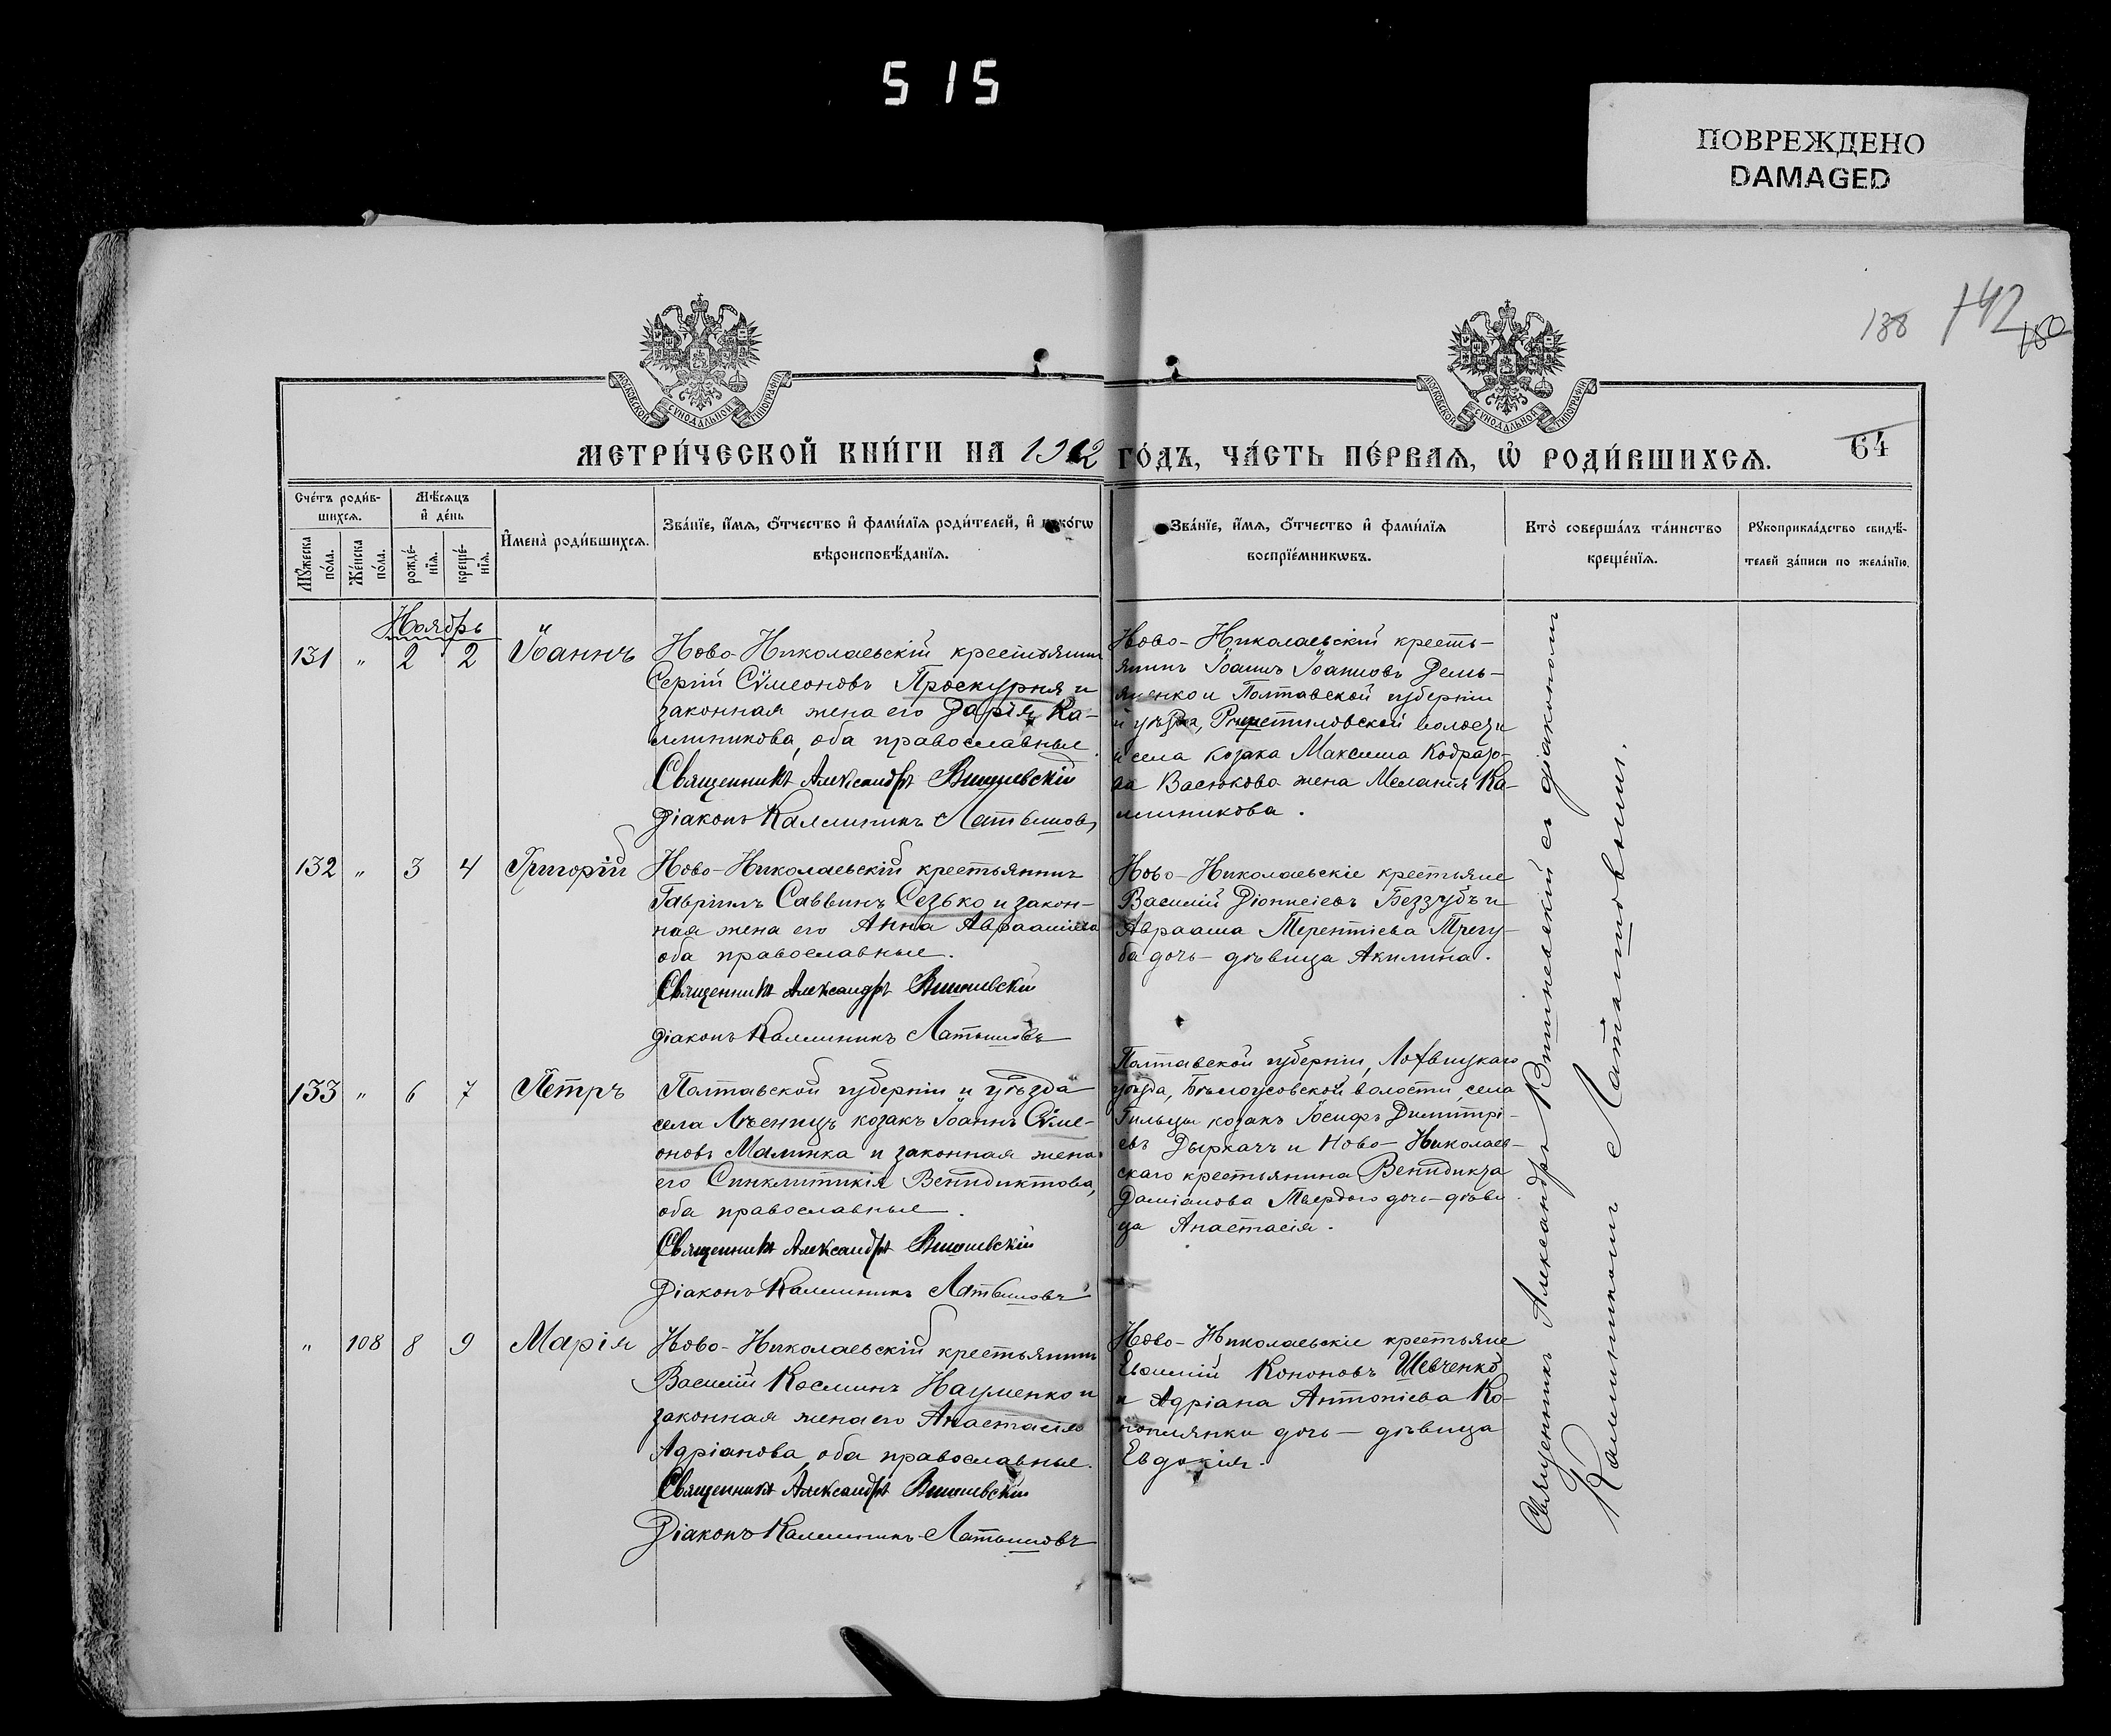 515
ПОВРЕЖДЕНО
DAMAGED
188 142 180
МОСКОВСКОЙ СѴНОДАЛЬНОЙ ТИПОГРАФІИ
МОСКОВСКОЙ СѴНОДАЛЬНОЙ ТИПОГРАФІИ
МЕТРИ́ЧЕСКОЙ КНИ́ГИ НА 1912 ГО́ДЪ, ЧА́СТЬ ПЕ́РВАЯ, Ѡ҆ РОДИ́ВШИХСЯ.
64
Сче́тъ роди́в-
шихся.
Мѣ́сяцъ
и҆ де́нь
Мꙋ́жеска
по́ла.
Же́нска
по́ла.
рожде́-
нїя.
креще́-
нїя.
И҆мена̀ роди́вшихся.
Зва́нїе, и҆́мя, о҆́тчество и҆ фами́лїя роди́телей, и҆ како́гѡ
вѣроисповѣ́данїя.
Зва́нїе, и҆́мя, о҆́тчество и҆ фами́лїя
воспрїе́мникѡвъ.
Кто̀ соверша́лъ та́инство
креще́нїя.
Рꙋкоприкла́дство свидѣ́-
телей за́писи по жела́нїю.
Ноябрь
131 " 2 2 Іоаннъ
Ново-Николаевскій крестьянинъ
Сергій Сѵмеоновъ Проскурня и
законная жена его Дарія Ка-
линникова, оба православные.
Священникъ Александръ Вишневскій
Діаконъ Каллиникъ Латышовъ
Ново-Николаевскій кресть-
янинъ Іоаннъ Іоанновъ Демь-
яненко и Полтавской губерніи
и уѣзда, Решетиловской волости
и села козака Максима
Васюкова жена Меланія Ка-
линникова.
132 " 3 4 Григорій
Ново-Николаевскій крестьянинъ
Гавріилъ Саввинъ Сезько и закон-
ная жена его Анна Авраамiева
оба православные.
Священникъ Александръ Вишневскій
Діаконъ Каллиникъ Латышовъ
Ново-Николаевскіе крестьяне
Василій Діонисіевъ Беззубъ и
Авраама Терентіева Трегу-
ба дочь - дѣвица Акилина.
133 " 6 7 Петръ
Полтавской губерніи и уѣзда
села Лѣсницъ козакъ Іоаннъ Сѵме-
оновъ Малинка и законная жена
его Синклитикія Венидиктова,
оба православные.
Священникъ Александръ Вишневскій
Діаконъ Каллиникъ Латышовъ
Полтавской губерніи, Лохвицкаго
уѣзда, Бѣлоусовской волости, села
козакъ Іосифъ Димитрі-
евъ Дыркачъ и Ново-Николаев-
скаго крестьянина Венидикта
Даміанова Твердого дочь - дѣви-
ца Анастасія.
" 108 8 9 Марія
Ново-Николаевскій крестьянинъ
Василій Косминъ Науменко и
законная жена его Анастасія
Адріанова, оба православные.
Священникъ Александръ Вишневскій
Діаконъ Каллиникъ Латышовъ
Ново-Николаевскіе крестьяне
Евѳимій Кононовъ Шевченко
и Адріана Антоніева Ко-
ноплянки дочь - дѣвица
Евдокія.
Священникъ Александръ Вишневскій съ діакономъ
Каллиникомъ Латышовымъ.